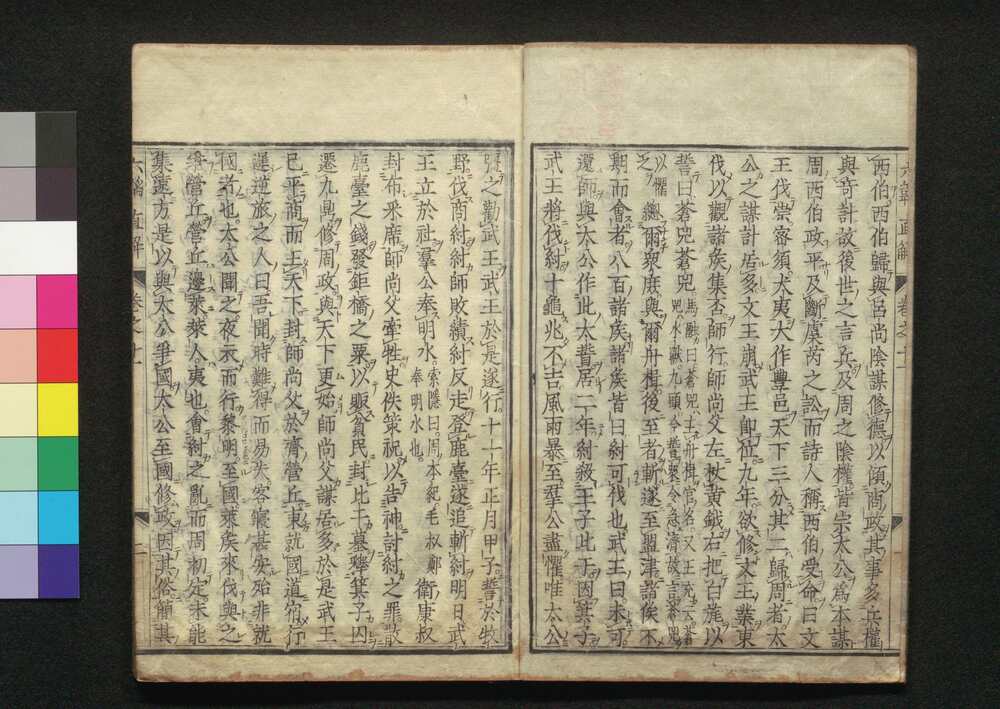 西伯西伯歸與呂尚陰謀修德以傾商政其事多兵權
與竒計故後世之言兵及周之陰權皆宗太公為本謀
周西伯政平及斷虞芮之訟而詩人稱西伯受命曰文
王伐崇密須犬夷大作豐邑天下三分其二歸周者太
公之謀計居多文王崩武王即位九年欲修文王業東
伐以觀諸侯集否師行師尚父左杖黄鉞右把白旄以
誓曰蒼兕蒼兕馬融曰蒼兕主舟楫官名又王充云蒼
兕水獸九頭今誓衆令急濟故言蒼兕
以懼之
總爾衆庶與爾舟楫後至者斬遂至盟津諸侯不
期而會者八百諸侯諸侯皆曰紂可伐也武王曰未可
還師與太公作此太誓居二年紂殺王子比干囚箕子
武王將伐紂卜龜兆不吉風雨暴至羣公盡懼唯太公
彊之勸武王武王於是遂行十一年正月甲子誓於牧
野伐商紂紂師敗績紂反走登鹿臺遂追斬紂明日武
王立於社羣公奉明水索隱曰周本紀毛叔鄭
奉明水也
衛康叔
封布采席師尚父牽牲史佚策祝以告神討紂之罪散
鹿臺之錢發鉅橋之粟以賑貧民封比干墓釋箕子囚
遷九鼎修周政與天下更始師尚父謀居多於是武王
已平商而王天下封師尚父於齊營丘東就國道宿行
遲逆旅之人曰吾聞時難得而易失客寢甚安殆非就
國者也太公聞之夜衣而行黎明至國萊侯來伐與之
爭營丘營丘邊萊萊人夷也會紂之亂而周初定未能
集遠方是以與太公爭國太公至國修政因其俗簡其
六韜直解
卷之一
二